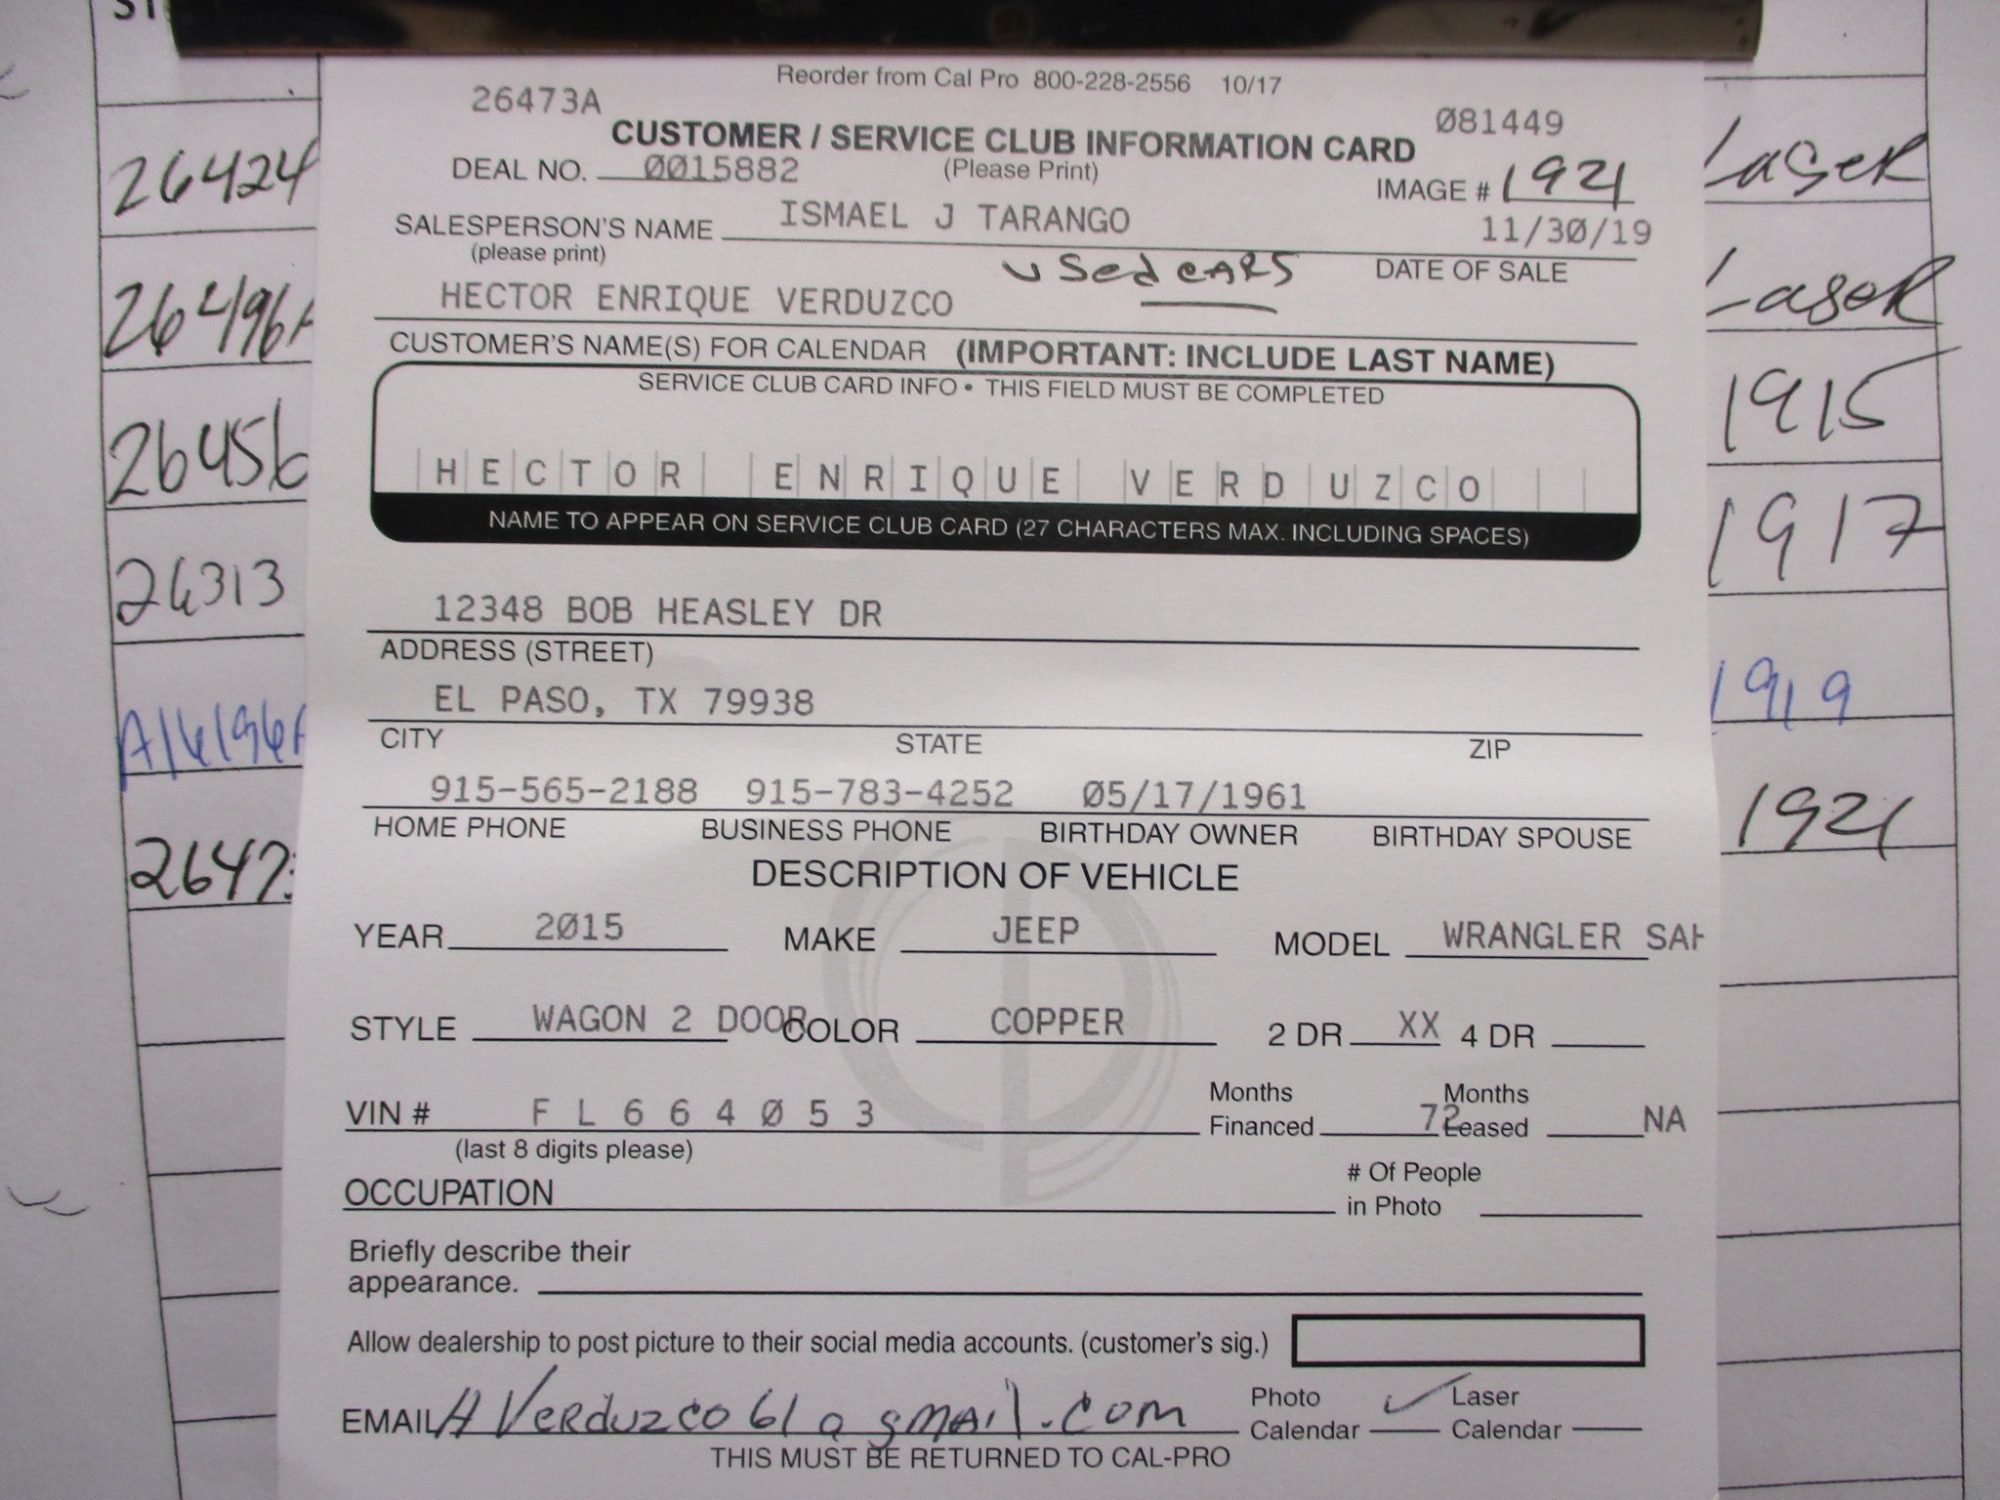 ST
Reorder from Cal Pro 800-228-2556 10/17
26473A Ø81449
CUSTOMER / SERVICE CLUB INFORMATION CARD
DEAL NO. ØØ15882 (Please Print) IMAGE # 1921
SALESPERSON'S NAME ISMAEL J TARANGO 11/3Ø/19
(please print) USed CARS DATE OF SALE
HECTOR ENRIQUE VERDUZCO
CUSTOMER'S NAME(S) FOR CALENDAR (IMPORTANT: INCLUDE LAST NAME)
SERVICE CLUB CARD INFO • THIS FIELD MUST BE COMPLETED
HECTOR ENRIQUE VERDUZCO
NAME TO APPEAR ON SERVICE CLUB CARD (27 CHARACTERS MAX. INCLUDING SPACES)
12348 BOB HEASLEY DR
ADDRESS (STREET)
EL PASO, TX 79938
CITY STATE ZIP
915-565-2188 915-783-4252 Ø5/17/1961
HOME PHONE BUSINESS PHONE BIRTHDAY OWNER BIRTHDAY SPOUSE
DESCRIPTION OF VEHICLE
YEAR 2Ø15 MAKE JEEP MODEL WRANGLER SAH
STYLE WAGON 2 DOOR COLOR COPPER 2 DR XX 4 DR
VIN # F L 6 6 4 Ø 5 3 Months Financed 72 Months Leased NA
(last 8 digits please)
OCCUPATION # Of People in Photo
Briefly describe their
appearance.
Allow dealership to post picture to their social media accounts. (customer's sig.)
EMAIL HVerduzco61@gmail.com Photo Calendar ✓ Laser Calendar
THIS MUST BE RETURNED TO CAL-PRO
26424 Laser
26496A Laser
26456 1915
26313 1917
1919
26473 1921